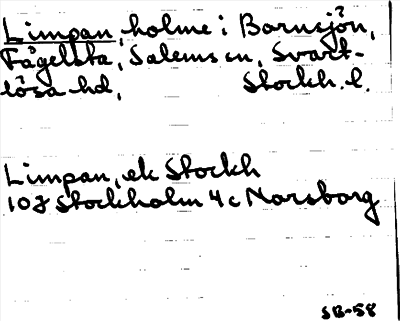 Limpan, holme i Bornsjön,
Fågelsta, Salems sn, Svart-
lösa hd, Stockh. l.
Limpan, ek Stockh
10J Stockholm 4c Norsborg
SB-58